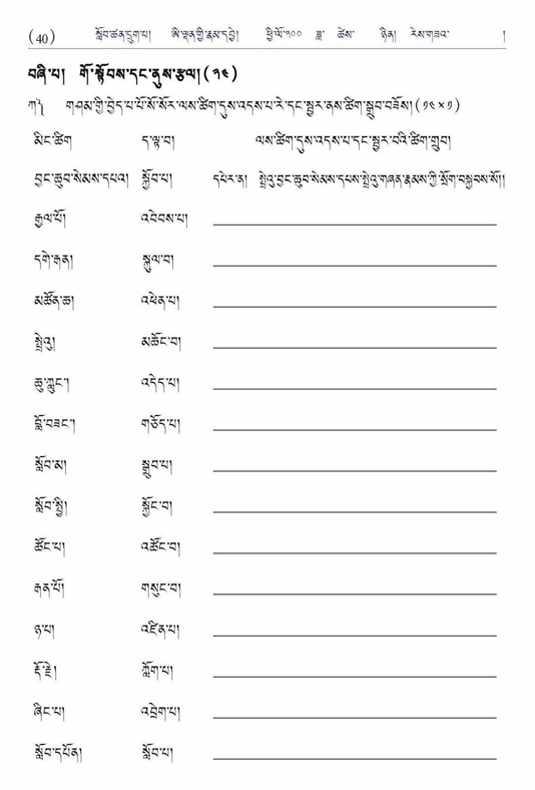 (40) སློབ་ཚན་དྲུག་པ། ཨེ་ཝྃ་གྱི་རྣམ་དབྱེ། ཕྱི་ལོ་༢༠༠ ཟླ་ ཚེས་ ཉིན། རེས་གཟའ་ །
བཞི་པ། གོ་སྟོབས་དང་ནུས་རྩལ། (༡༤)
ཀ༽ གཤམ་གྱི་བྱེད་པ་པོ་སོ་སོར་ལས་ཚིག་དུས་འདས་པ་རེ་དང་སྦྱར་ནས་ཚིག་སྒྲུབ་བཟོས། (༡༤×༡)
མིང་ཚིག ད་ལྟ་བ། ལས་ཚིག་དུས་འདས་པ་དང་སྦྱར་བའི་ཚིག་གྲུབ།
བྱང་ཆུབ་སེམས་དཔའ། སྐྱོབ་པ། དཔེར་ན། སྤྲེའུ་བྱང་ཆུབ་སེམས་དཔས་སྤྲེའུ་གཞན་རྣམས་ཀྱི་སྲོག་བསྐྱབས་སོ།།
རྒྱལ་པོ། འབེབས་པ།
དགེ་རྒན། སྐུལ་བ།
མཚོན་ཆ། འཕེན་པ།
སྤྲེའུ། མཆོང་བ།
ཆུ་ཀླུང་། འདེད་པ།
བློ་བཟང་། གཅོད་པ།
སློབ་མ། སྒྲུབ་པ།
སློབ་སྤྱི། སྐྱོང་བ།
ཚོང་པ། འཚོང་བ།
རྒན་པོ། གསུང་བ།
ཉ་པ། འཛིན་པ།
རྡོ་རྗེ། ཀློག་པ།
ཞིང་པ། འབྲེག་པ།
སློབ་དཔོན། སློབ་པ།